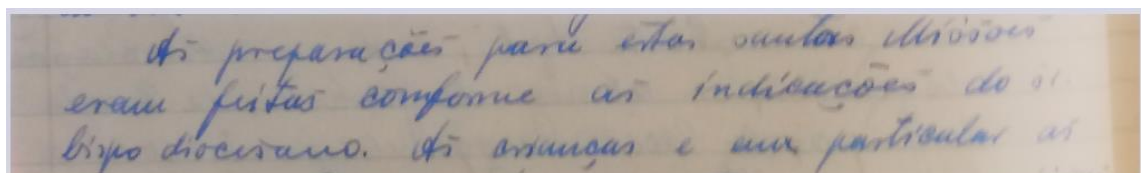 As preparações para estas santas Missões
eram feitas conforme as indicações do
bispo diocesano. As crianças e em particular as